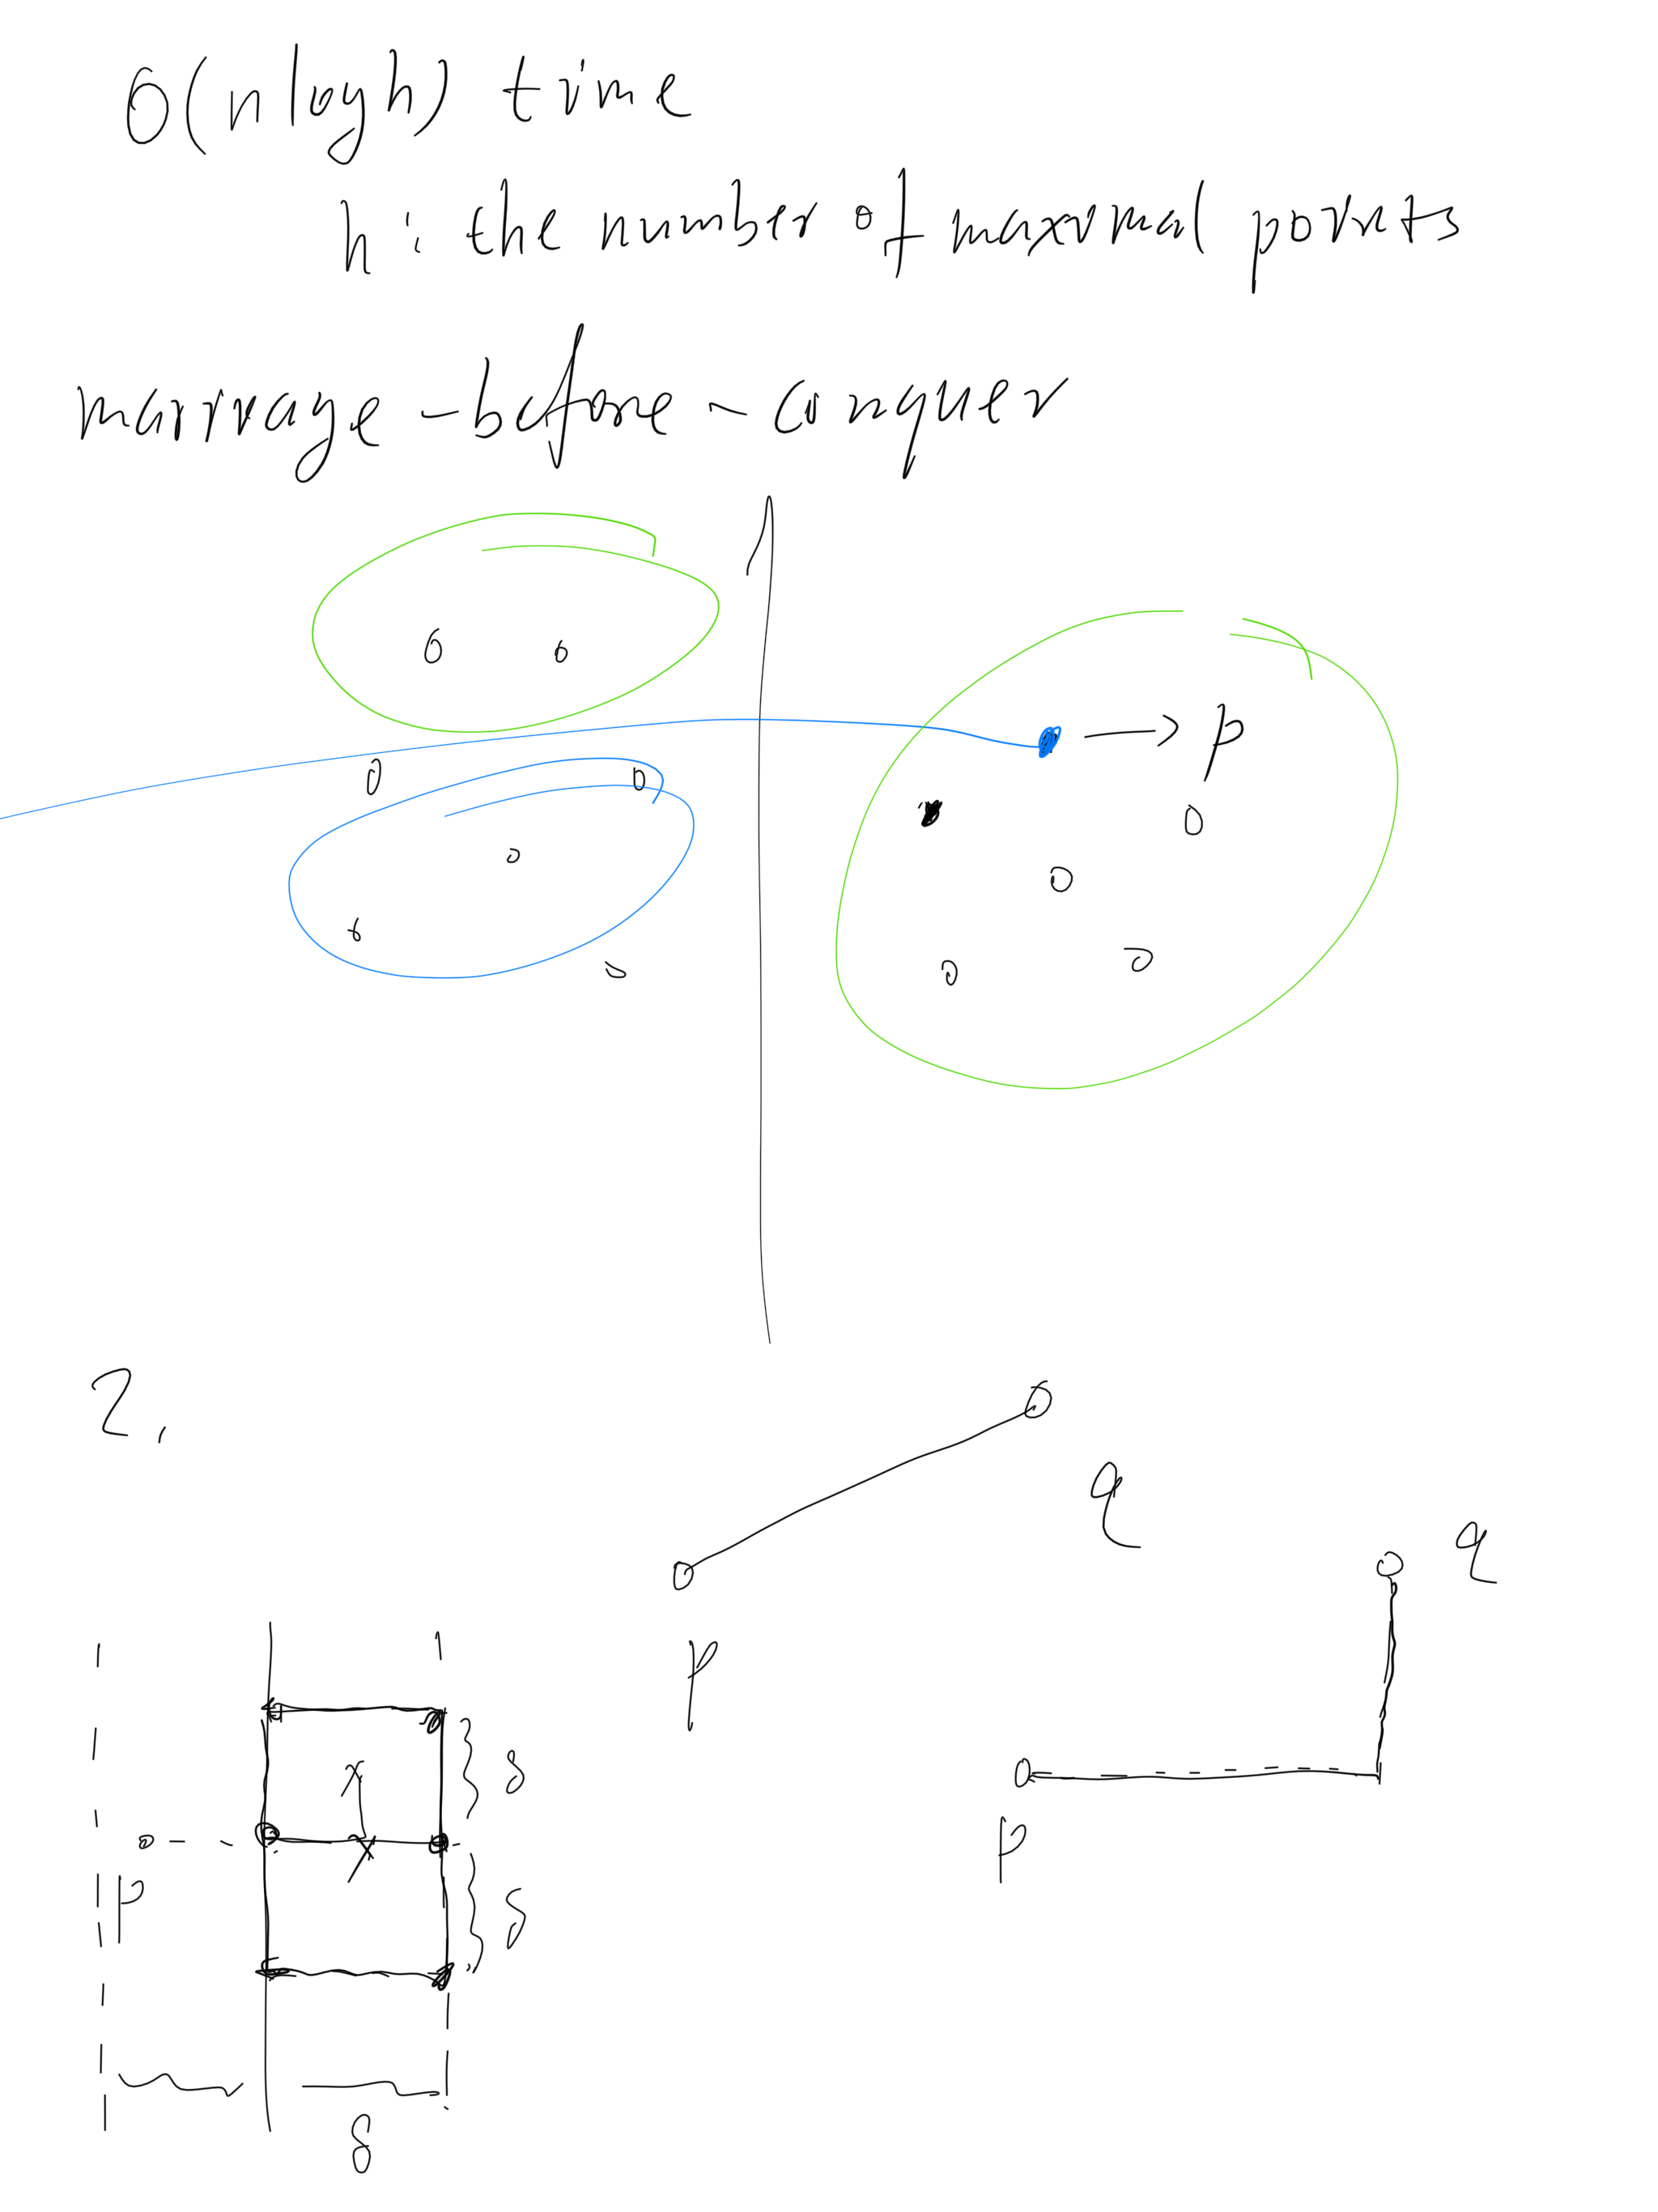 O(n log h) time
h : the number of maximal points
marriage - before - conquer
p
2.
q
p
q
p
p
δ
δ
δ